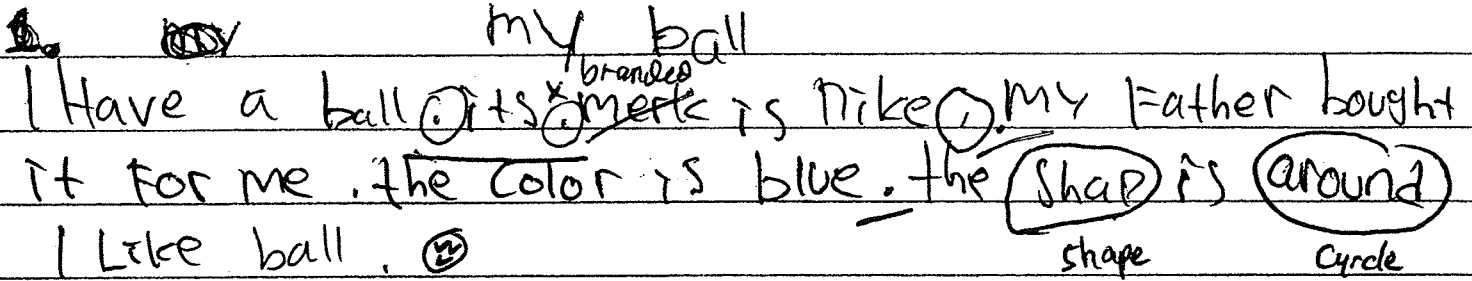 1. my ball
branded
I Have a ball . its . merk is nike . My Father bought
it For me . the color is blue . the shap is around
I Like ball .
shape cyrcle